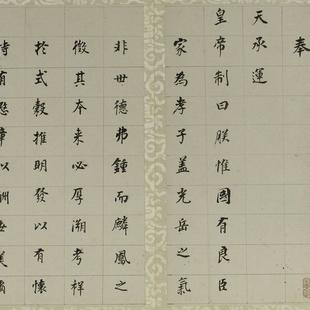 奉
天承運
皇帝制曰朕惟國有良臣
家為孝子蓋光岳之氣
非世德弗鍾而麟鳳之
徵其本来必厚溯考祥
於式穀推明發以有懷
有章以酬美